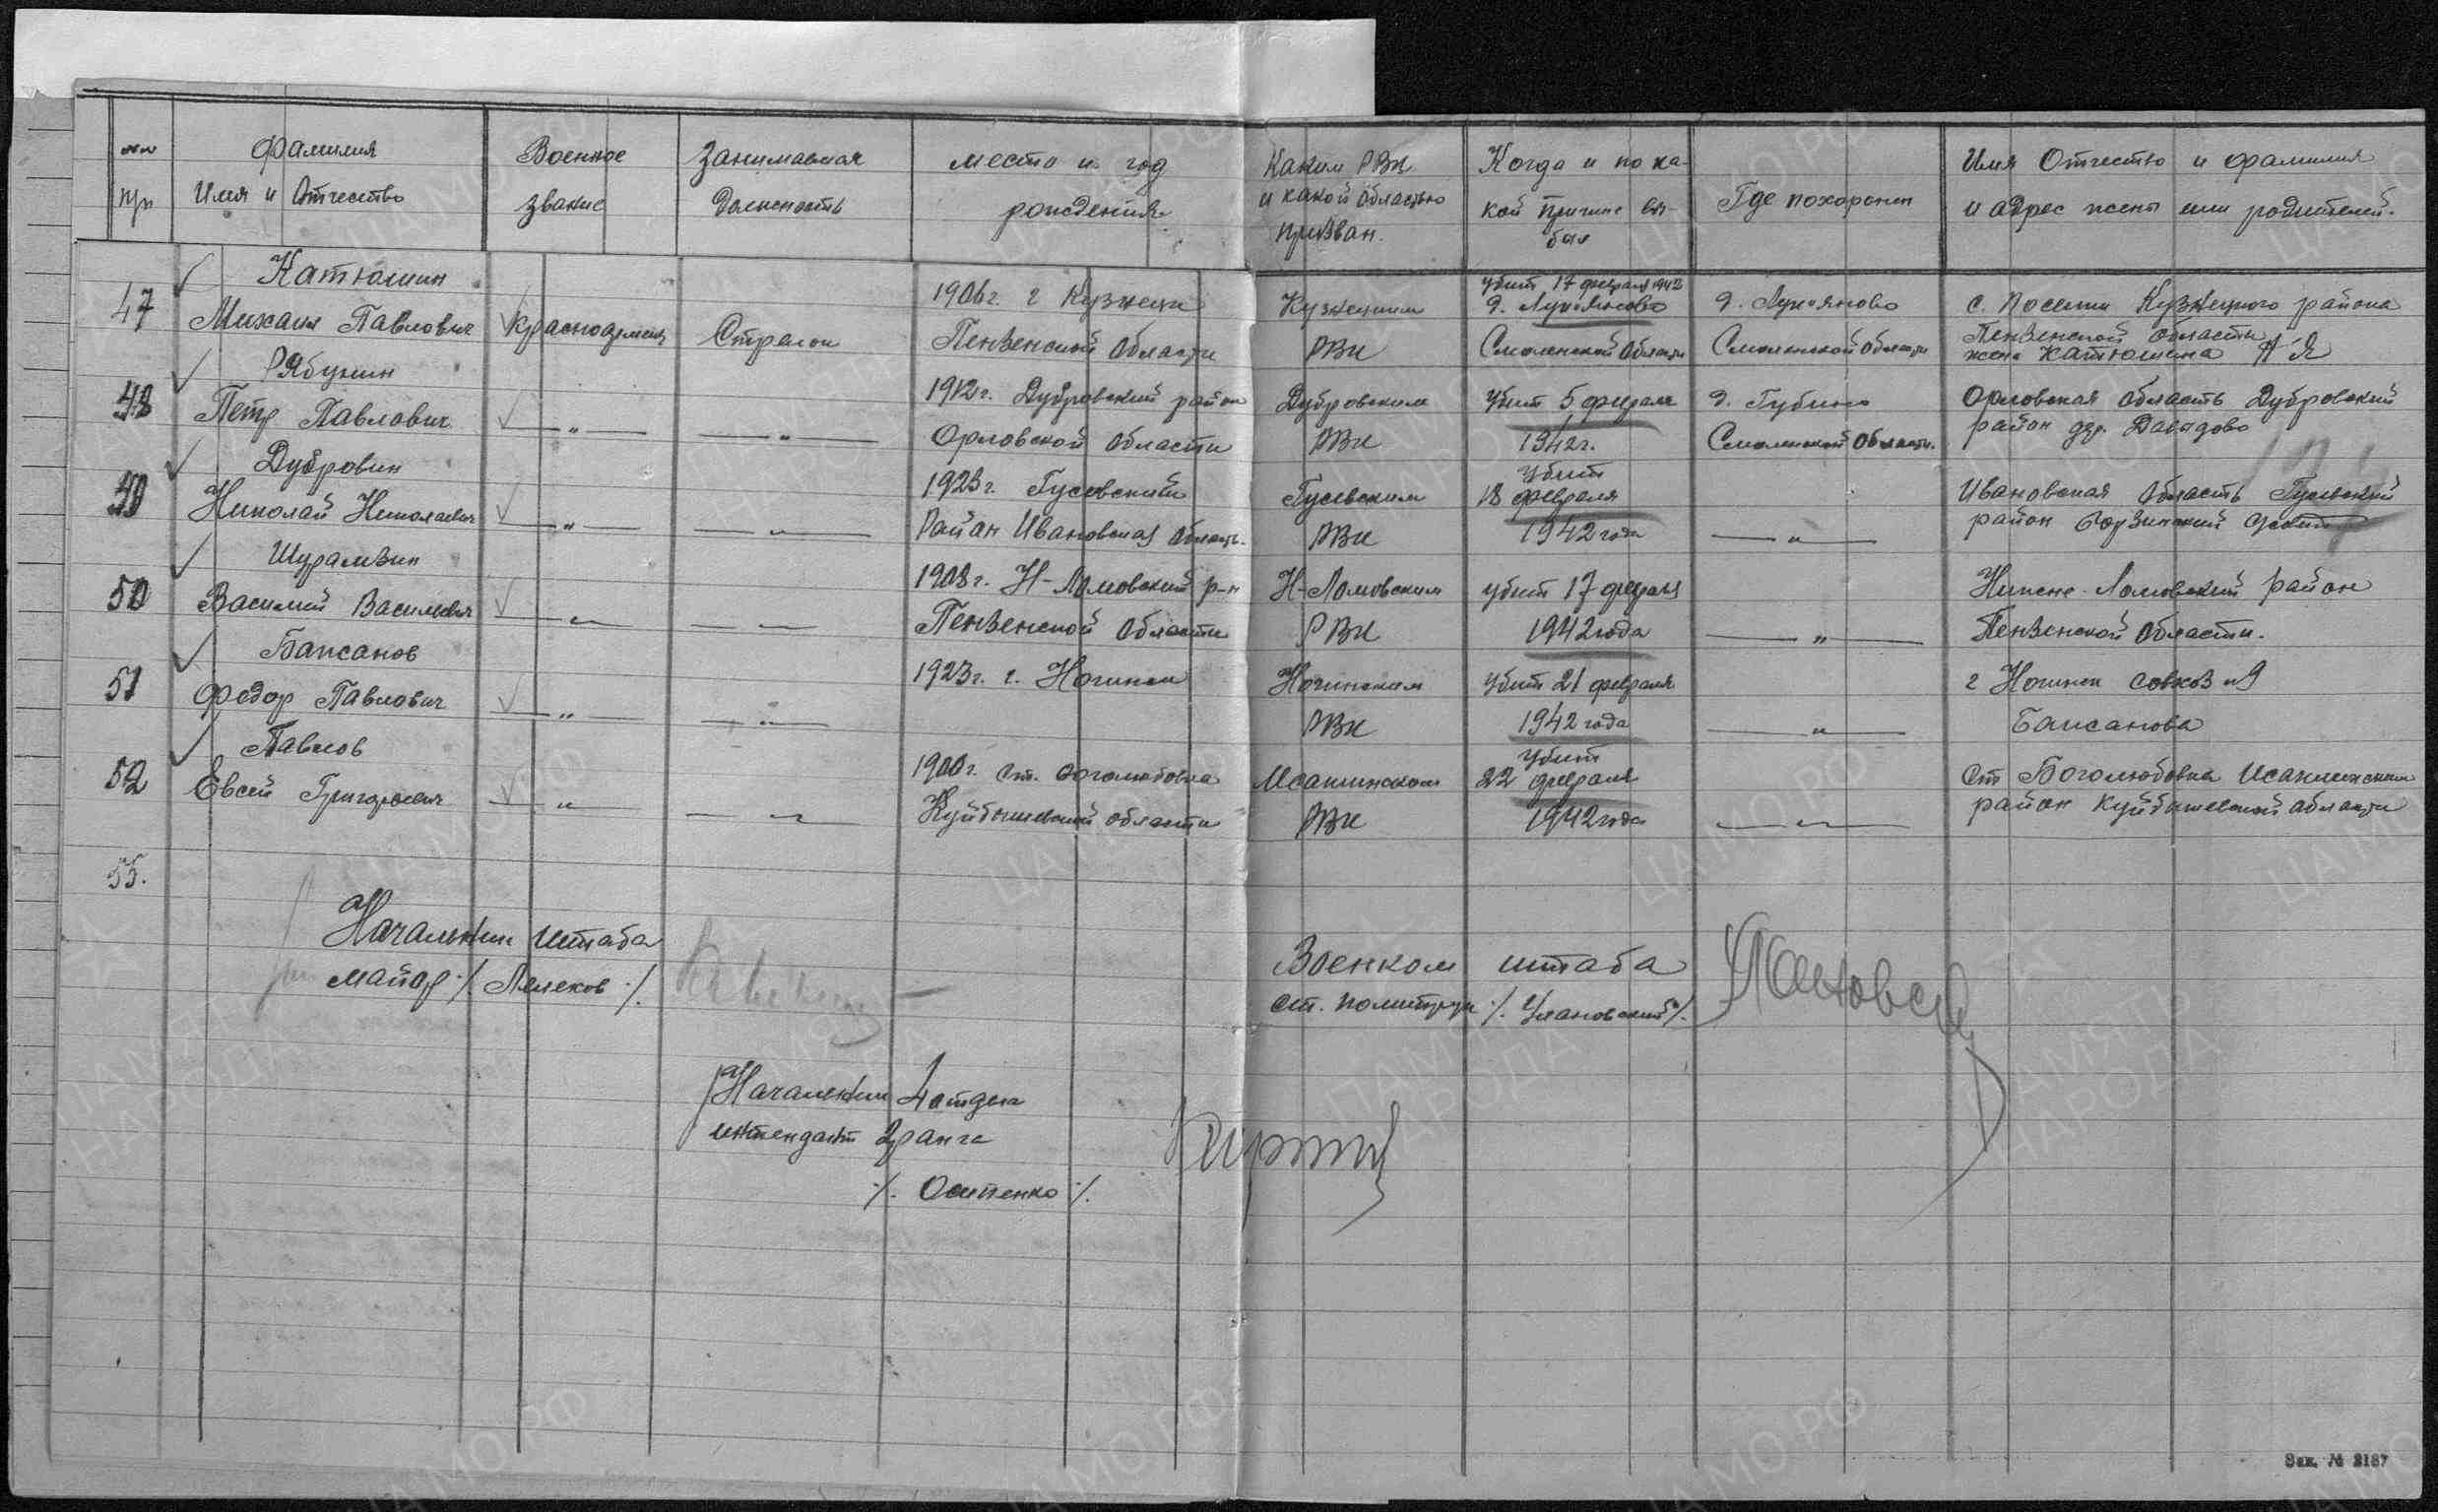 №№ Фамилия Военное Занимаемая Место и год Каким РВК Когда и по ка- Где похоронен Имя Отчество и фамилия
пп Имя и Отчество звание должность рождения. и какой областью призван. кой причине вы-был и адрес жены или родителей.
Катюшин
47 Михаил Павлович Красноармеец Стрелок 1906г. г Кузнецк Кузнецким убит 17 февраля 1942 д. Лукьяново с. Поселки Кузнецкого района
Пензенской области РВК д. Лукьяново Смоленской области Смоленской области Пензенской области
жена Катюшина А Я
Рябунин
48 Петр Павлович —„— —„— 1912г. Дубровский район Дубровским убит 5 февраля д. Губино Орловская область Дубровский
Орловской области РВК 1942г. Смоленской области. район дер. Давыдово
Дубровин
49 Николай Николаевич —„— —„— 1923г. Гусевский Гусевским убит 18 февраля Ивановская область Гусевский
Район Ивановская область. РВК 1942 года —„— район
Шурамзин
50 Василий Васильевич —„— —„— 1908г. Н-Ломовский р-н Н-Ломовским убит 17 февраля Нижне-Ломовский район
Пензенской области РВК 1942 года —„— Пензенской области.
Бапсанов
51 Федор Павлович —„— —„— 1923г. г. Ногинск Ногинским убит 21 февраля г Ногинск совхоз №9
РВК 1942 года —„— Бапсанова
Павлов
52 Евсей Григорьевич —„— —„— 1900г. ст. Боголюбовка Исаклинским убит 22 февраля ст Боголюбовка Исаклинский
Куйбышевской области РВК 1942 года —„— район Куйбышевской области
55.
Начальник штаба
майор /. Лялеков ./
Военком штаба
ст. политрук /. Улановский ./
Начальник 4 отдел
интендант 2 ранга
/. Осипенко ./
Зак. № 2187
ЦАМО РФ
ПАМЯТЬ НАРОДА